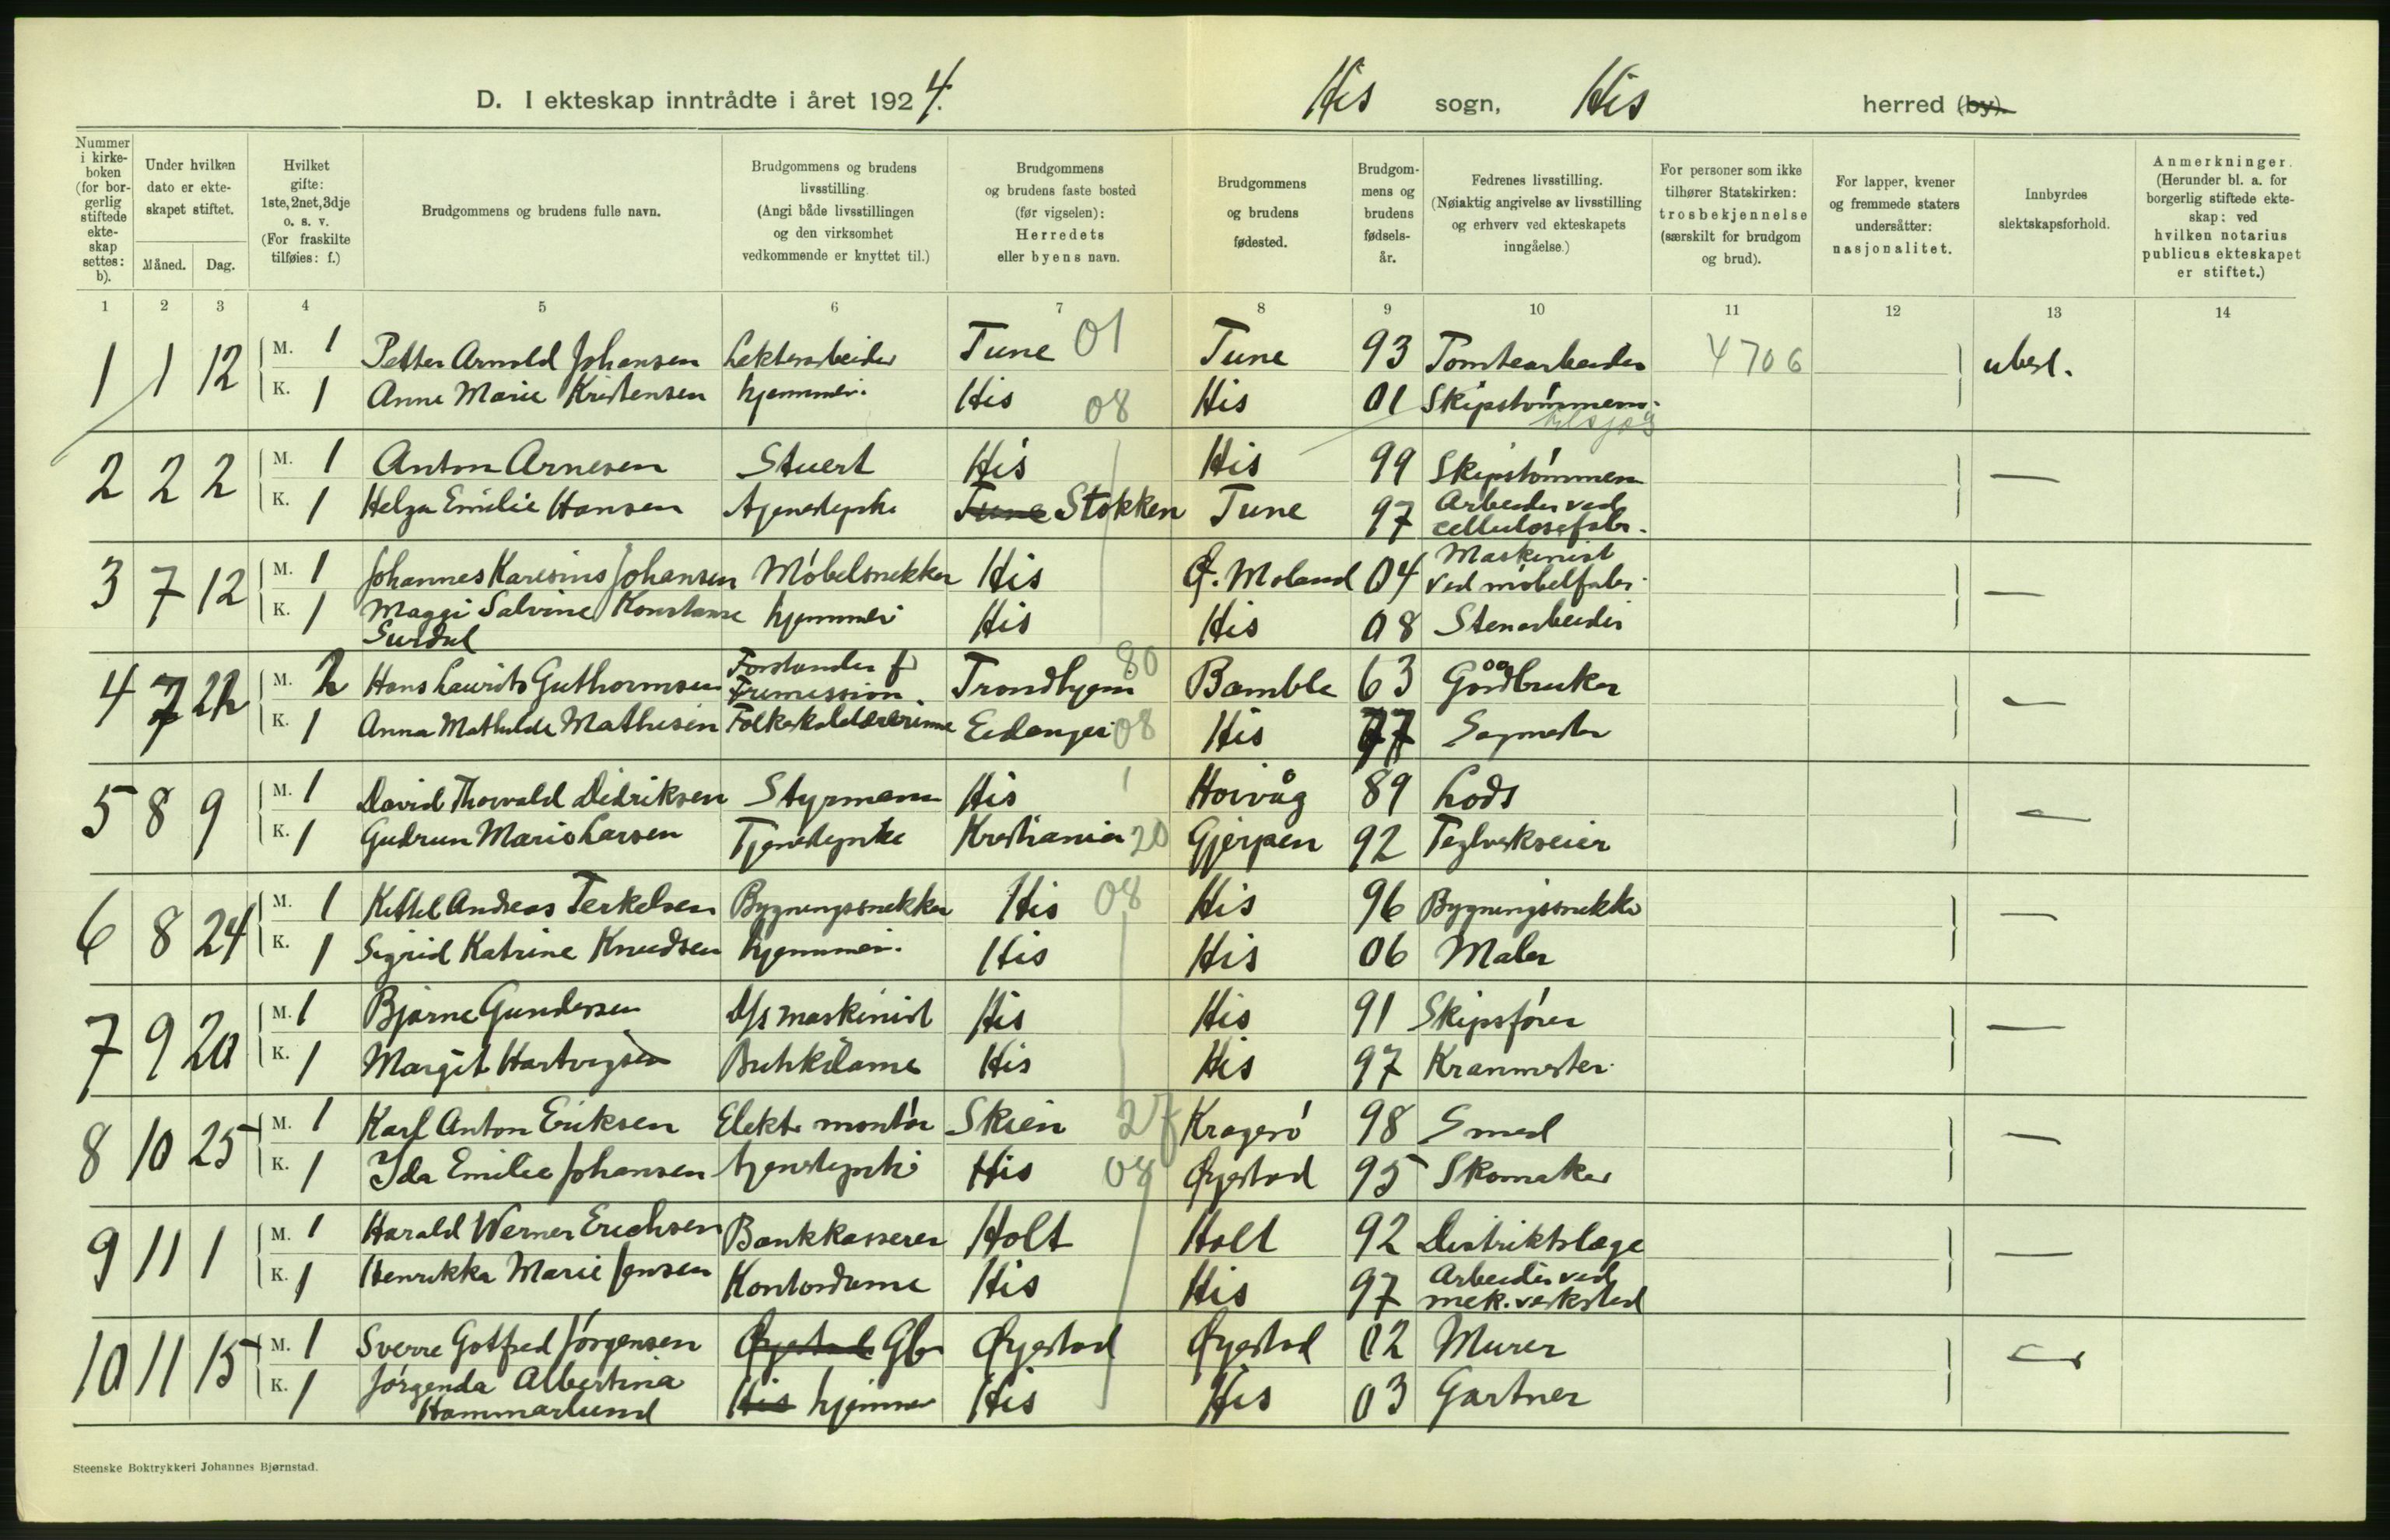 D. I ekteskap inntrådte i året 1924. His sogn, His herred (by).
Nummer i kirkeboken (for borgerlig stiftede ekteskap settes: b).
Under hvilken dato er ekteskapet stiftet.
Måned. Dag.
Hvilket gifte: 1ste, 2net, 3dje o. s. v. (For fraskilte tilføies: f.)
Brudgommens og brudens fulle navn.
Brudgommens og brudens livsstilling. (Angi både livsstillingen og den virksomhet vedkommende er knyttet til.)
Brudgommens og brudens faste bosted (før vigselen): Herredets eller byens navn.
Brudgommens og brudens fødested.
Brudgommens og brudens fødselsår.
Fedrenes livsstilling. (Nøiaktig angivelse av livsstilling og erhverv ved ekteskapets inngåelse.)
For personer som ikke tilhører Statskirken: trosbekjennelse (særskilt for brudgom og brud).
For lapper, kvener og fremmede staters undersåtter: nasjonalitet.
Innbyrdes slektskapsforhold.
Anmerkninger. (Herunder bl. a. for borgerlig stiftede ekteskap: ved hvilken notarius publicus ekteskapet er stiftet.)
1 2 3 4 5 6 7 8 9 10 11 12 13 14
1 1 12 M. 1 Petter Arnold Johansen Lekterarbeider Tune 01 Tune 93 Tomtearbeider 4706 ubesl.
K. 1 Anne Marie Kristensen hjemmev. His 08 His 01 Skipstømmerm.
2 2 2 M. 1 Anton Arnesen Stuert His His 99 Skipstømmerm —
K. 1 Helga Emilie Hansen tjenestepike Tune Stokken Tune 97 Arbeider ved cellulosefabr.
3 7 12 M. 1 Johannes Karesius Johansen Møbelsnekker His Ø. Moland 04 Maskinist ved møbelfabr. —
K. 1 Maggi Salvine Konstanse Surdal hjemmev His His 08 Stenarbeider
4 7 22 M. 2 Hans Laurits Guthormsen Forstander f Frimission Trondhjem 80 Bamble 63 Gårdbruker —
K. 1 Anna Mathilde Mathisen Folkeskolelærerinne Eidanger 08 His 77 Sagmester
5 8 9 M. 1 David Thorvald Didriksen Styrmann His Høivåg 89 Lods —
K. 1 Gudrun Marie Larsen Tjenestepike Kristiania 20 Gjerpen 92 Teglverkseier
6 8 24 M. 1 Kittel Andreas Terkelsen Bygningssnekker His 08 His 96 Bygningssnekker —
K. 1 Sigrid Katrine Knudsen hjemmev. His His 06 Maler
7 9 20 M. 1 Bjarne Gundersen D/s maskinist His His 91 Skipsfører —
K. 1 Margit Hartvigsen Butikkdame His His 97 Kranmester
8 10 25 M. 1 Karl Anton Eriksen Elektr montør Skien 27 Kragerø 98 Smed —
K. 1 Ida Emilie Johansen tjenestepike His 08 Øyestad 95 Skomaker
9 11 1 M. 1 Harald Werner Erichsen Bankkasserer Holt Holt 92 Distriktslæge —
K. 1 Henrikka Marie Jensen Kontordame His His 97 Arbeider ved mek. verksted
10 11 15 M. 1 Sverre Gotfred Jørgensen Øyestad Gb Øyestad Øyestad 02 Murer —
K. 1 Jørgenda Albertina Hammarlund His hjemmev His His 03 Gartner
Steenske Boktrykkeri Johannes Bjørnstad.